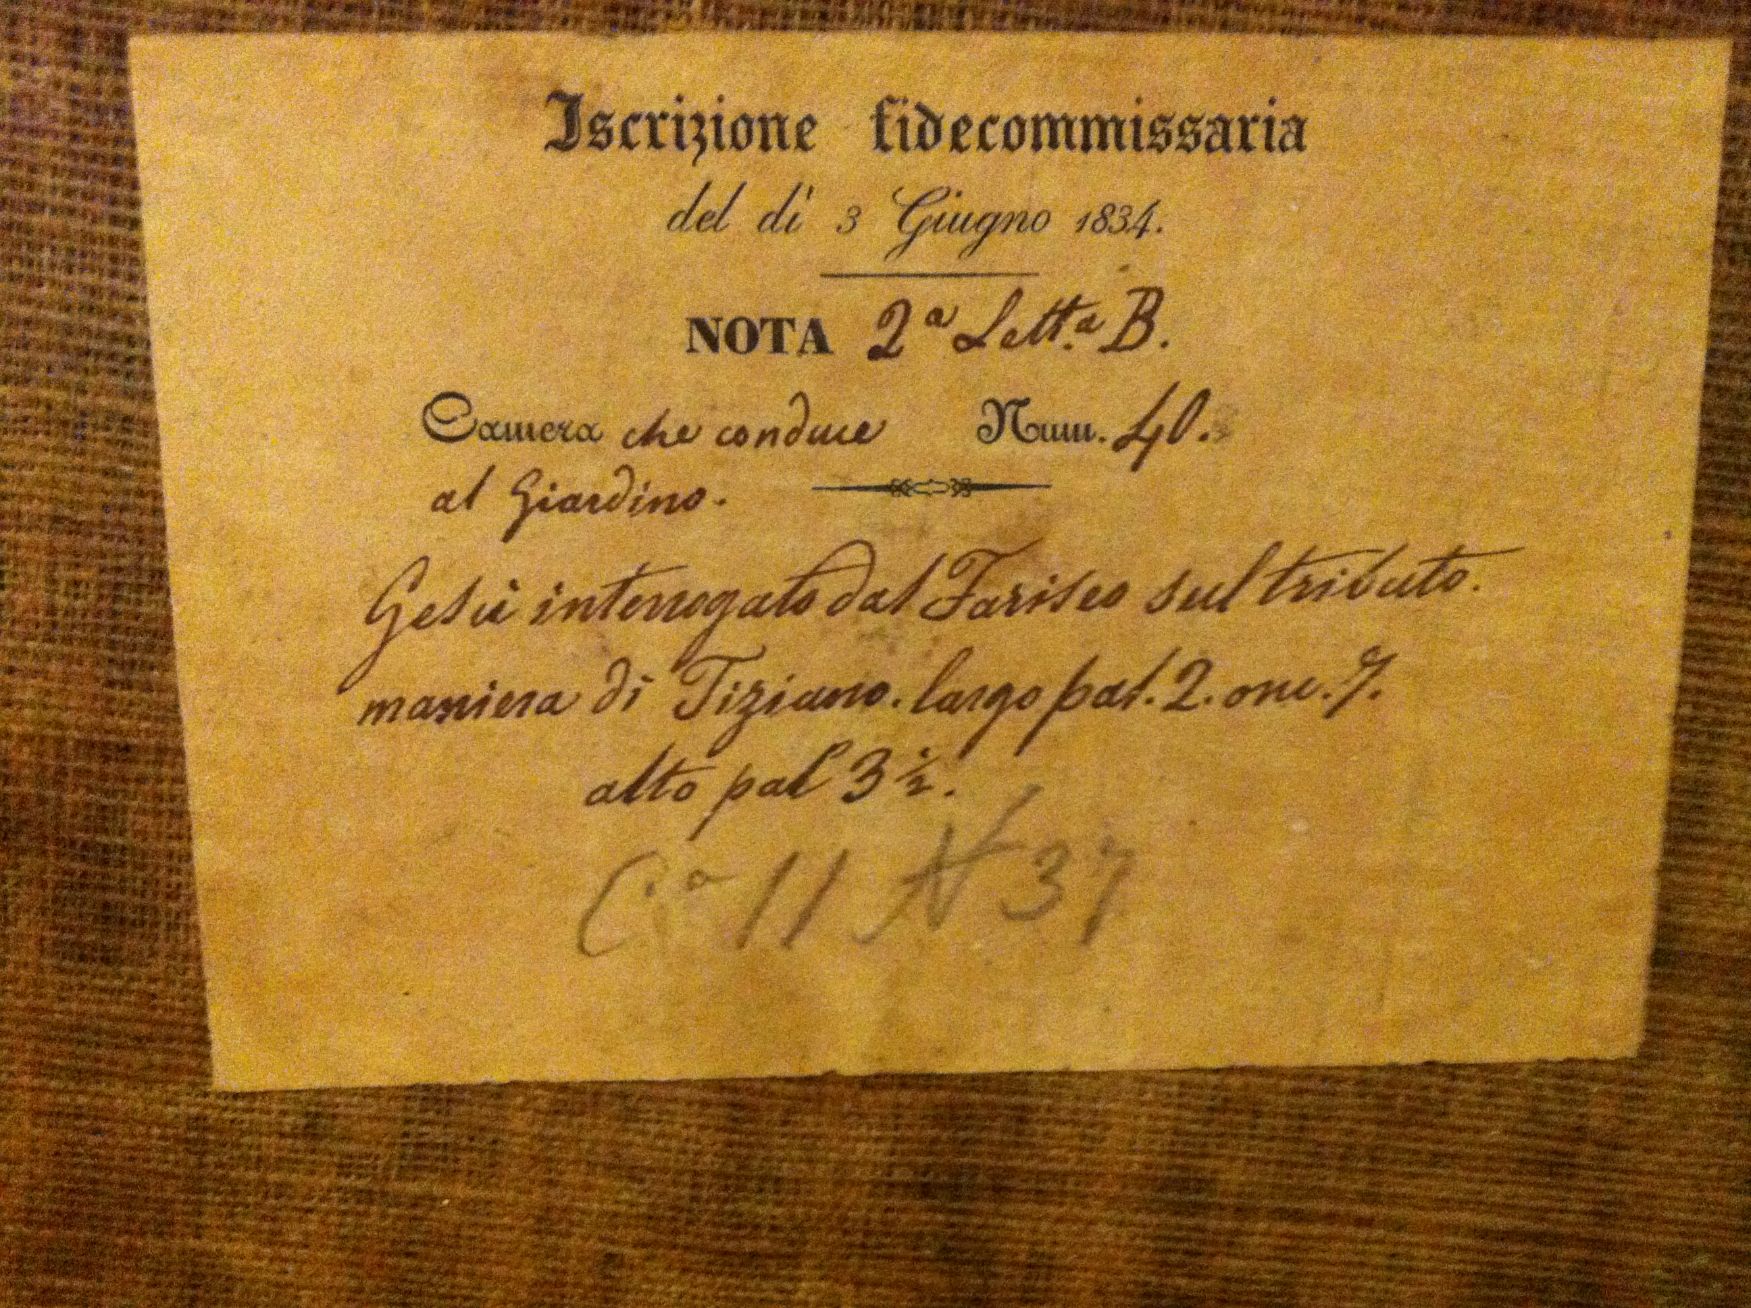 Iscrizione fidecommissaria
del dì 3 Giugno 1834.
NOTA 2ª Lett.ª B.
Camera che conduce Num. 40.
al Giardino.
Gesù interrogato dal Fariseo sul tributo.
maniera di Tiziano. largo pal. 2. onc. 7.
alto pal 3 ½.
C.ª 11 N 37